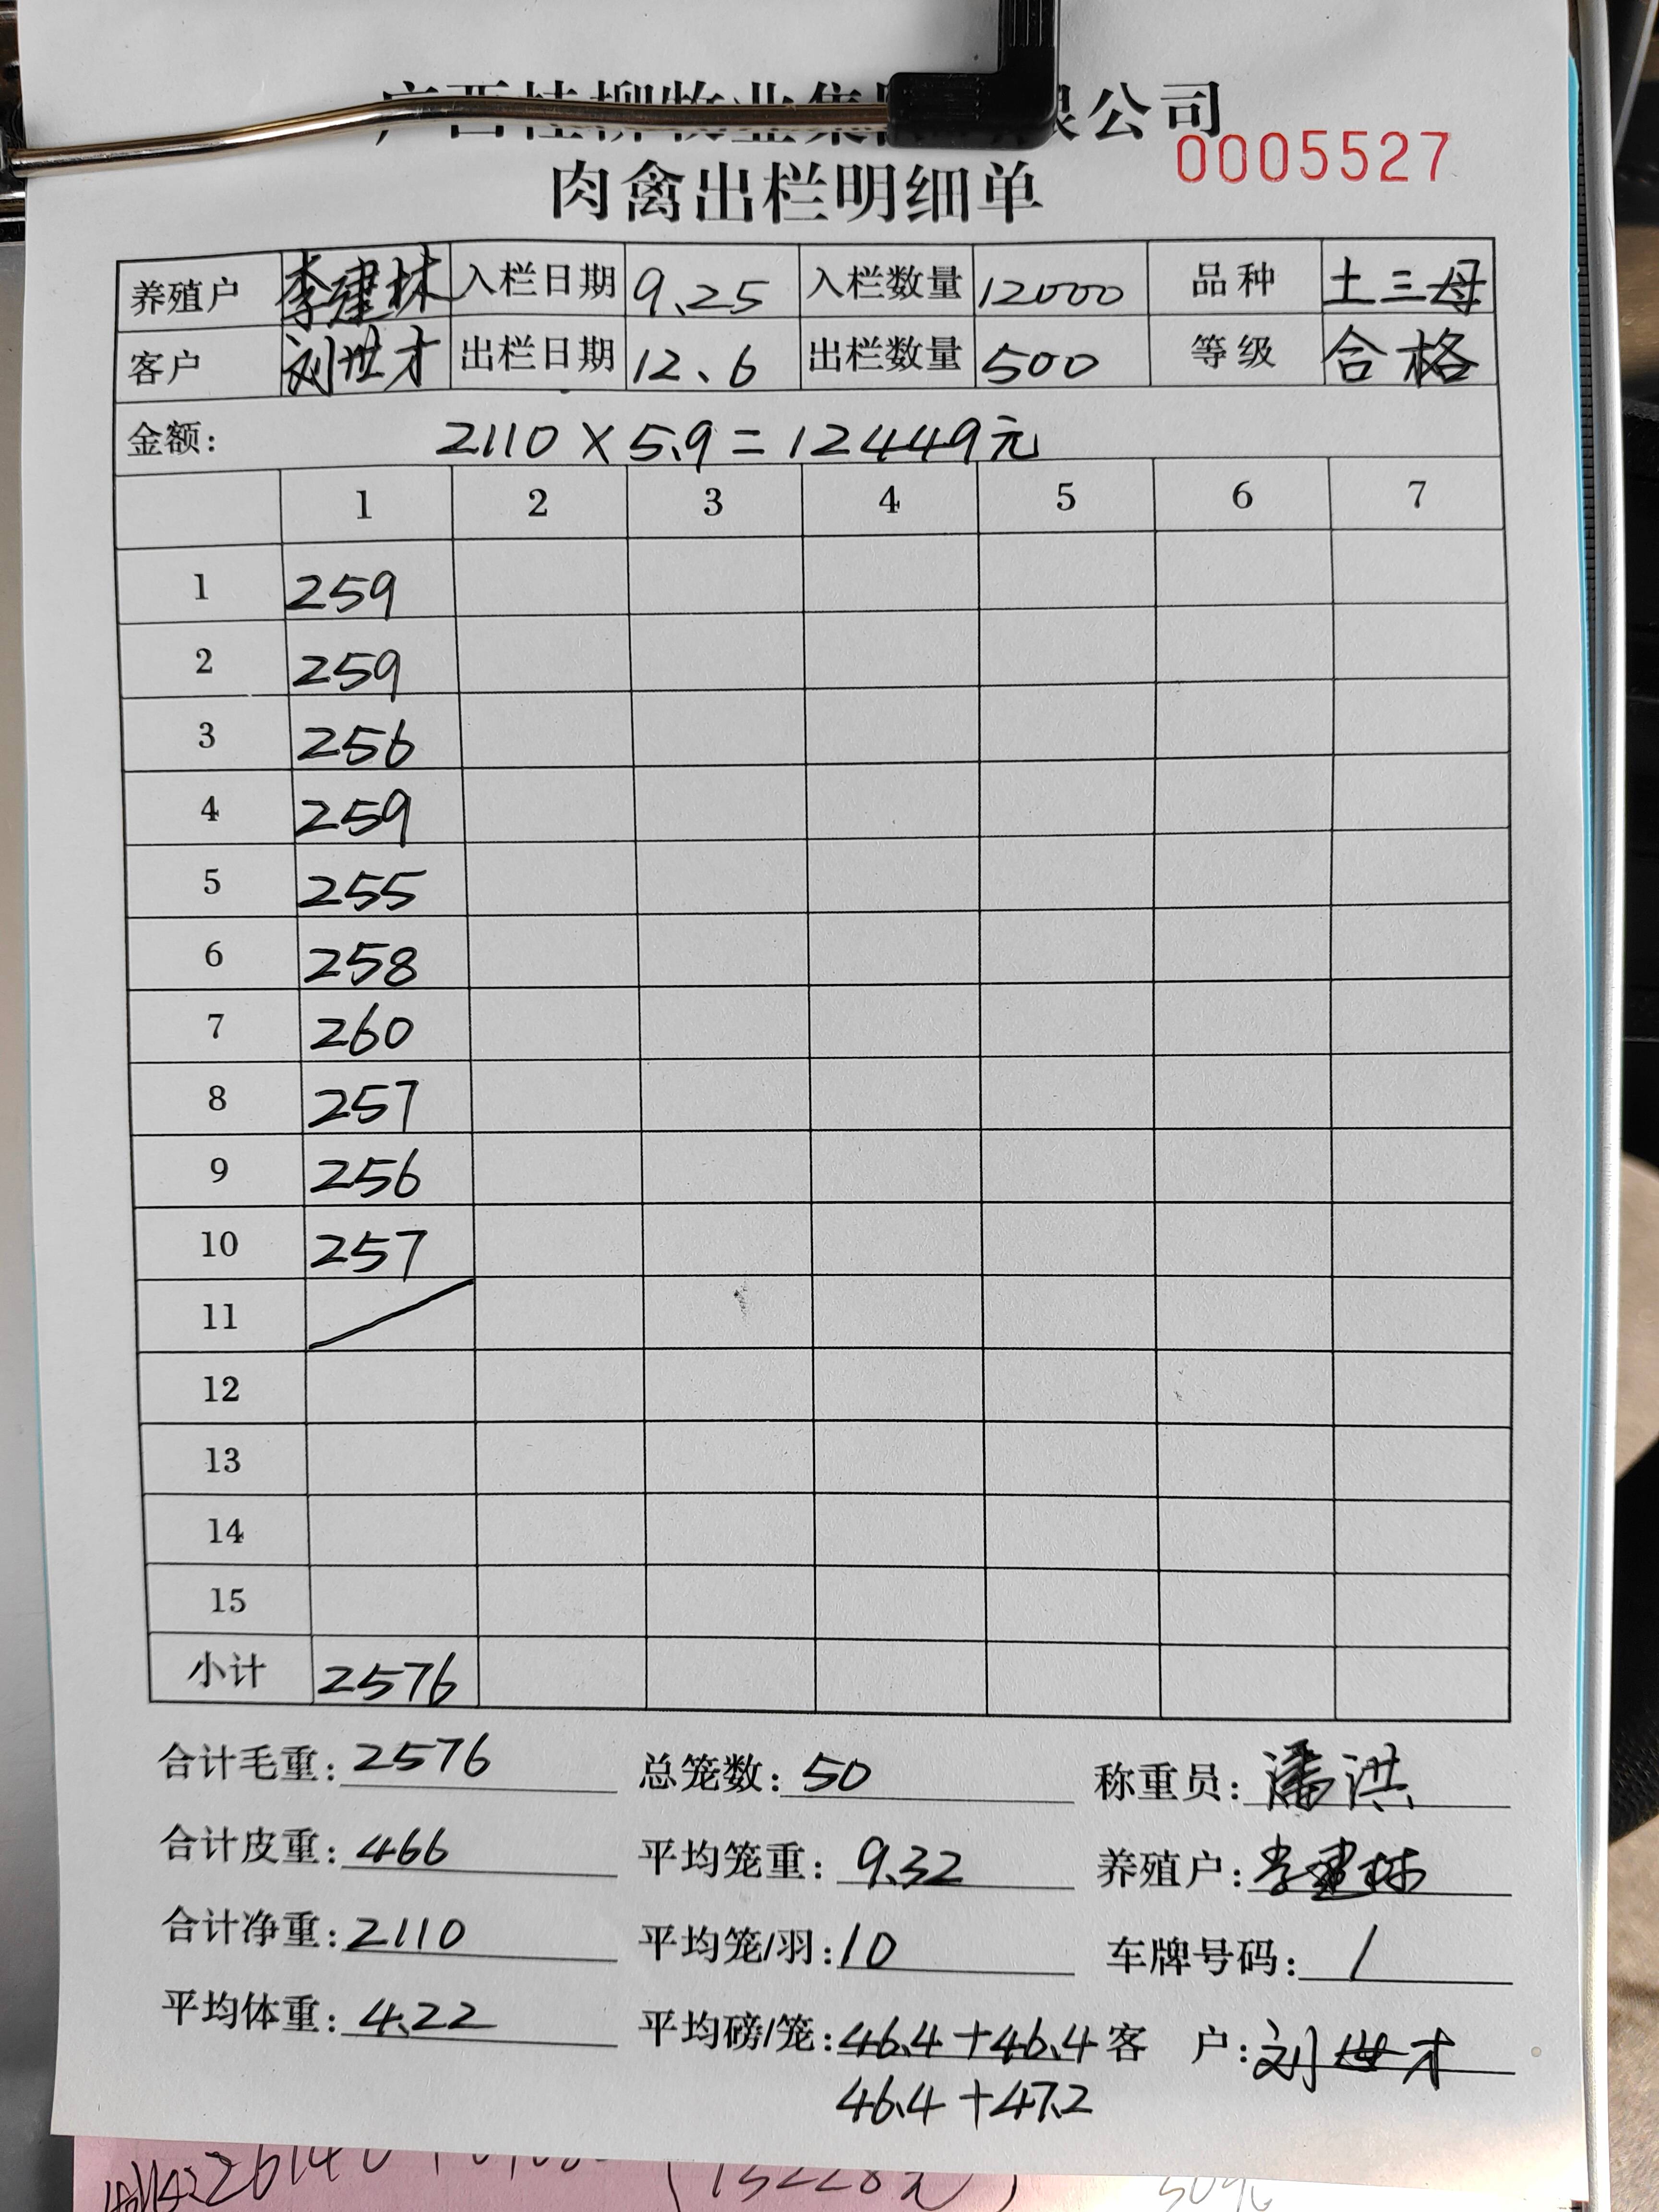 广西桂柳牧业集团有限公司
0005527
肉禽出栏明细单
养殖户 李建林 入栏日期 9.25 入栏数量 12000 品种 土三母
客户 刘世才 出栏日期 12.6 出栏数量 500 等级 合格
金额: 2110×5.9=12449元
1 2 3 4 5 6 7
1 259
2 259
3 256
4 259
5 255
6 258
7 260
8 257
9 256
10 257
11
12
13
14
15
小计 2576
合计毛重: 2576 总笼数: 50 称重员: 潘洪
合计皮重: 466 平均笼重: 9.32 养殖户: 李建林
合计净重: 2110 平均笼/羽: 10 车牌号码: /
平均体重: 4.22 平均磅/笼: 46.4+46.4 客 户: 刘世才
46.4+47.2